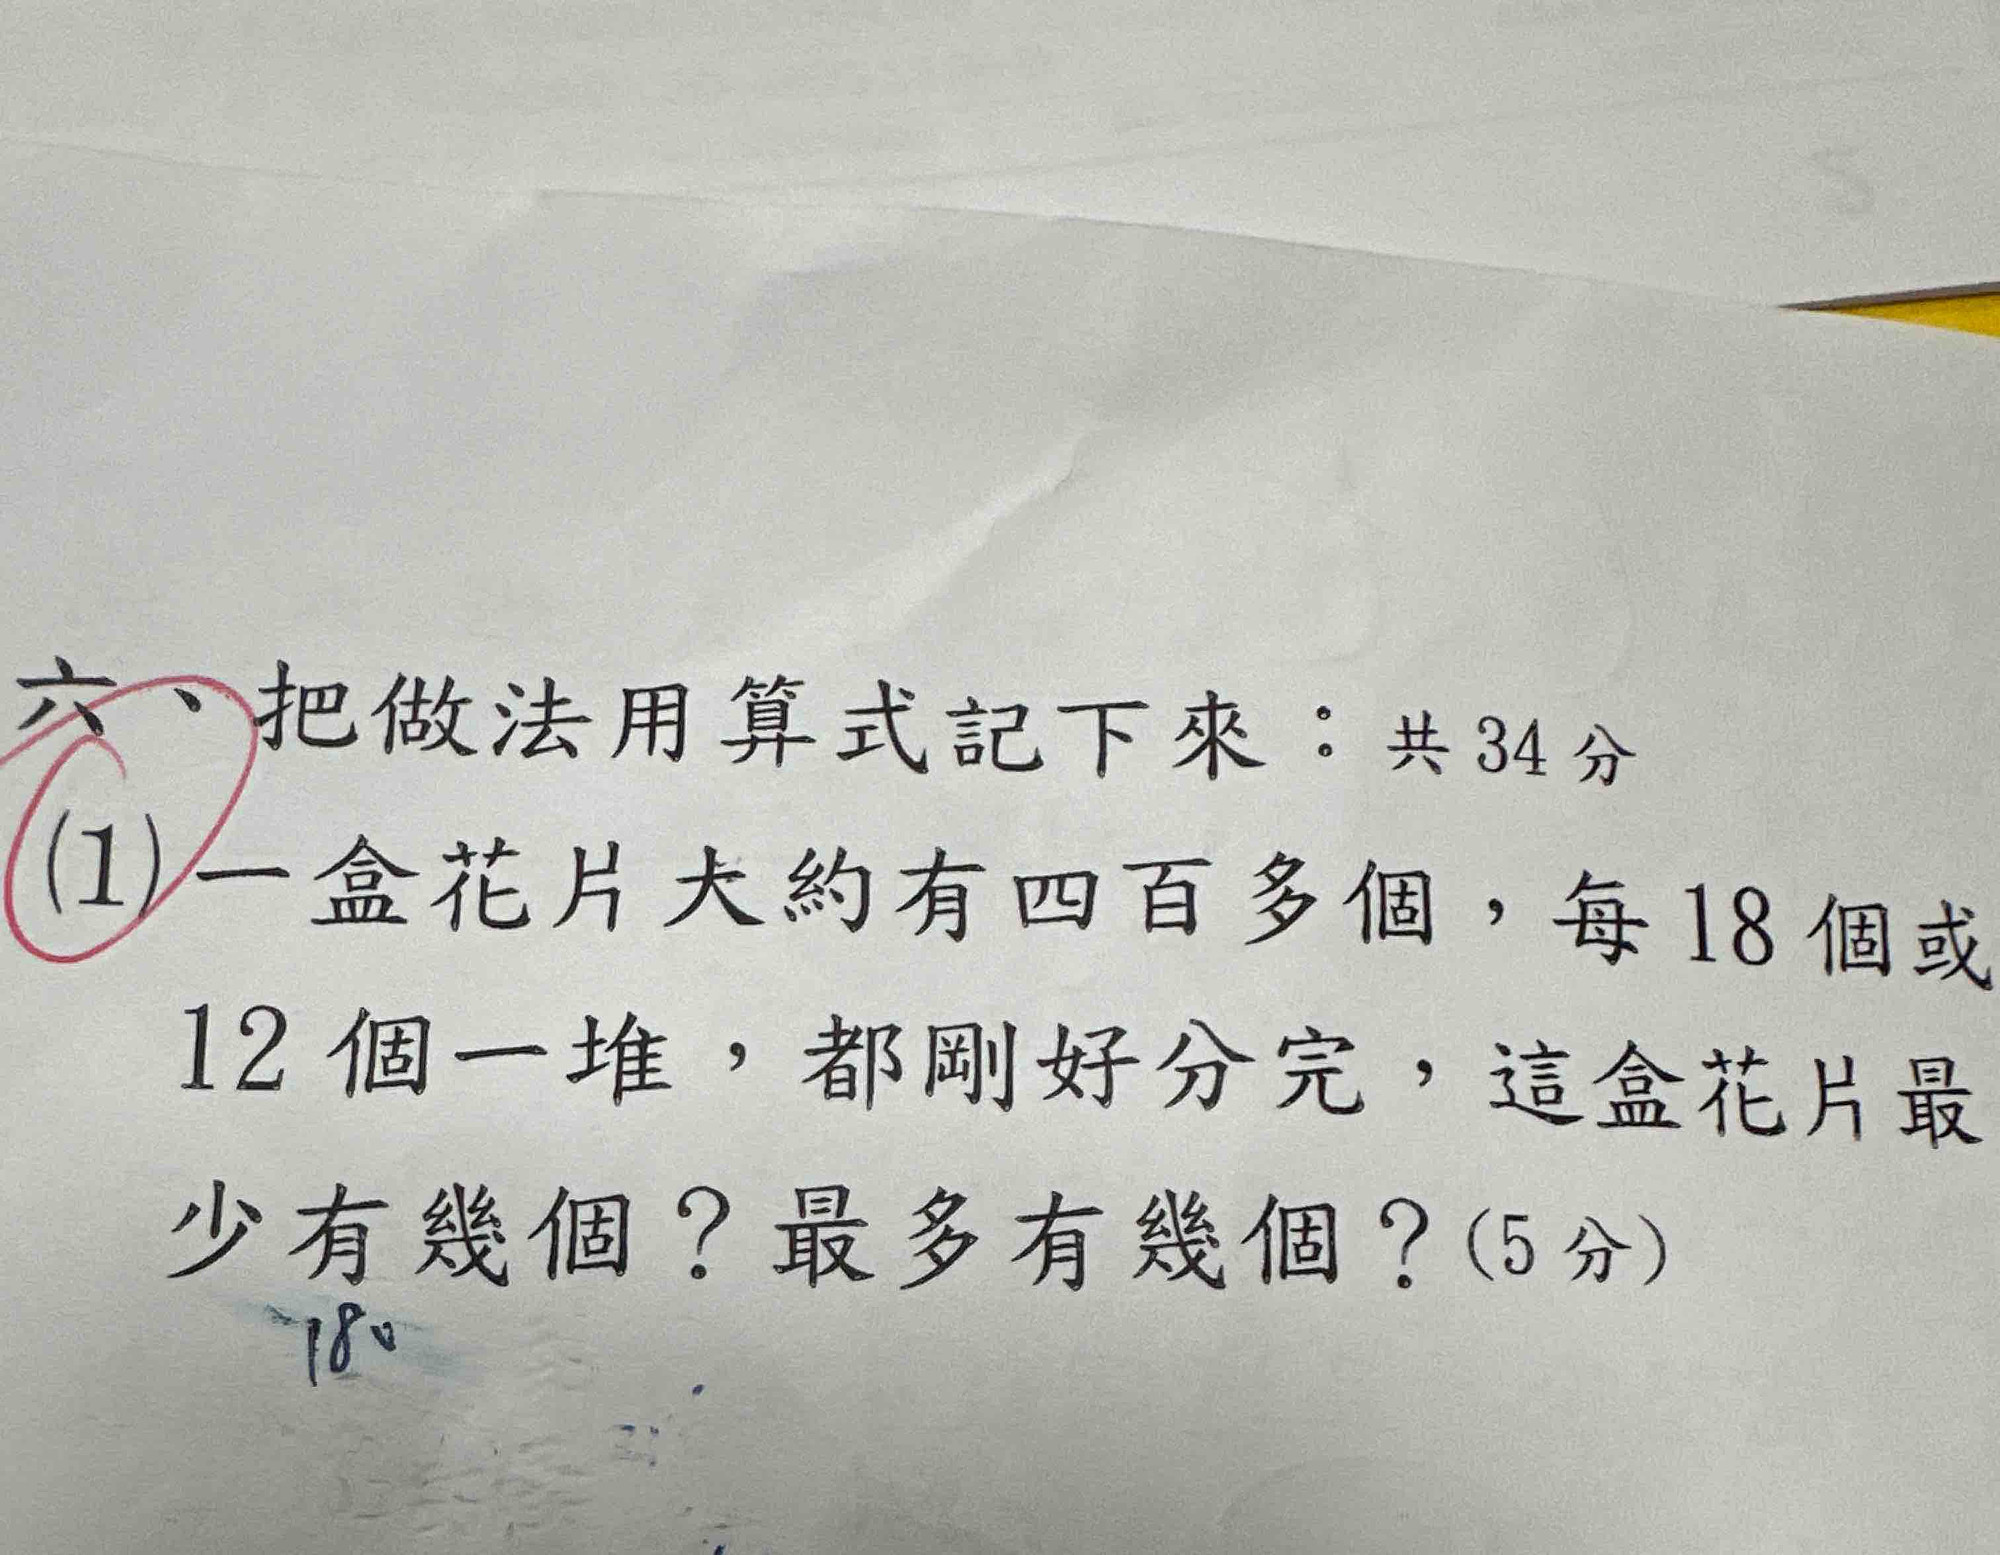 六、把做法用算式記下來：共34分
(1)一盒花片大約有四百多個，每18個或
12個一堆，都剛好分完，這盒花片最
少有幾個？最多有幾個？(5分)
180